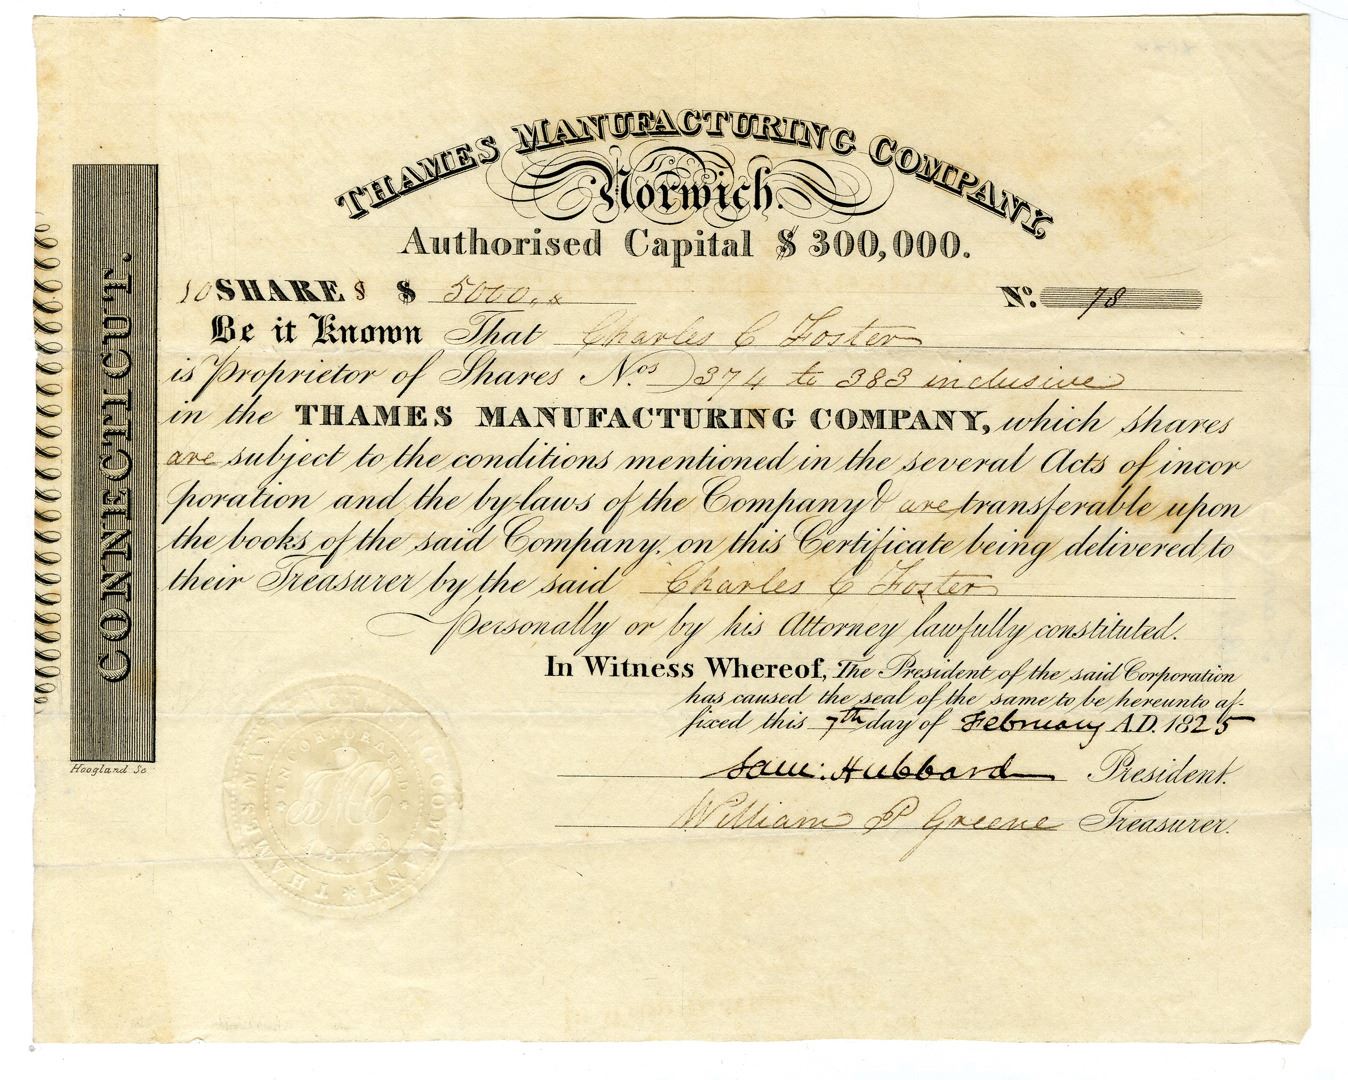 THAMES MANUFACTURING COMPANY,
Norwich.
Authorised Capital $ 300,000.
10 SHARE s $ 5000,, x
No. 78
Be it Known That Charles C Foster
is Proprietor of Shares Nos. 374 to 383 inclusive
in the THAMES MANUFACTURING COMPANY, which shares
are subject to the conditions mentioned in the several Acts of incor
poration and the by-laws of the Company & are transferable upon
the books of the said Company, on this Certificate being delivered to
their Treasurer by the said Charles C Foster
personally or by his Attorney lawfully constituted.
In Witness Whereof, The President of the said Corporation
has caused the seal of the same to be hereunto af-
fixed this 7th day of February A.D. 1825
Sam: Hubbard President.
William P Greene Treasurer.
CONNECTICUT.
Hoogland Sc
THAMES MANU COMPANY *
* INCORPORATED *
TMC